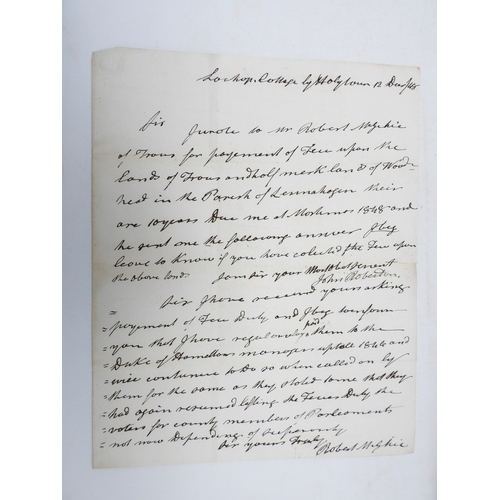 Lochop Cottage by Holytown 12 Decr/48
Sir
I wrote to Mr Robert McGhie
of Trous for payement of Feu upon the
lands of Trous and half merk land of Wood=
head in the Parish of Lesmahagen their
are 10 years Due me at Martinmas 1848 and
he sent me the following answer I beg
leave to know if you have colected the Feu upon
the above lands I am Sir your Most Obt Servent
John Roberton
Sir I have received yours asking
= payement of Feu Duty and I beg to inform
= you that I have regularly paid them to the
= Duke of Hamiltons managers up till 1844 and
= will continue to do so when called on by
= them for the same as they stated to me that they
= had again resumed lifting the Feues Duty the
= voters for county members of Parleaments
= not now Depending of Superiority
Sir yours Truly
Robert McGhie